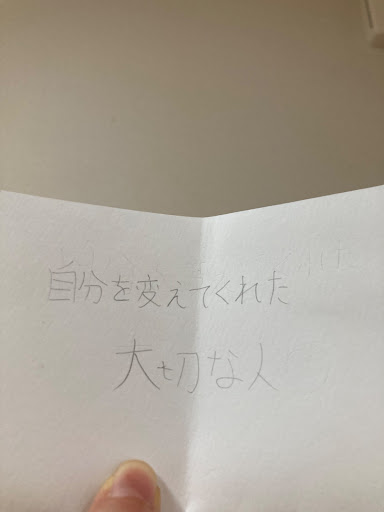 自分を変えてくれた
大切な人